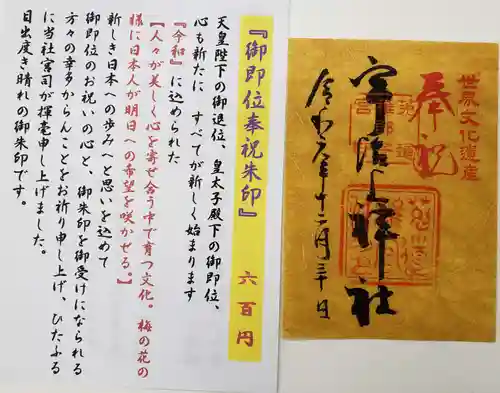 『御即位奉祝朱印』 六百円
天皇陛下の御退位、皇太子殿下の御即位、
心も新たに すべてが新しく始まります
『令和』に込められた
【人々が美しく心を寄せ合う中で育つ文化。梅の花の
様に日本人が明日への希望を咲かせる。】
新しき日本への歩みへと思いを込めて
御即位のお祝いの心と、御朱印を御受けになられる
方々の幸多からんことをお祈り申し上げ、ひたふる
に当社宮司が揮毫申し上げました。
目出度き晴れの御朱印です。
世界文化遺産
奉祝
宇治上神社
令和元年十二月三十日